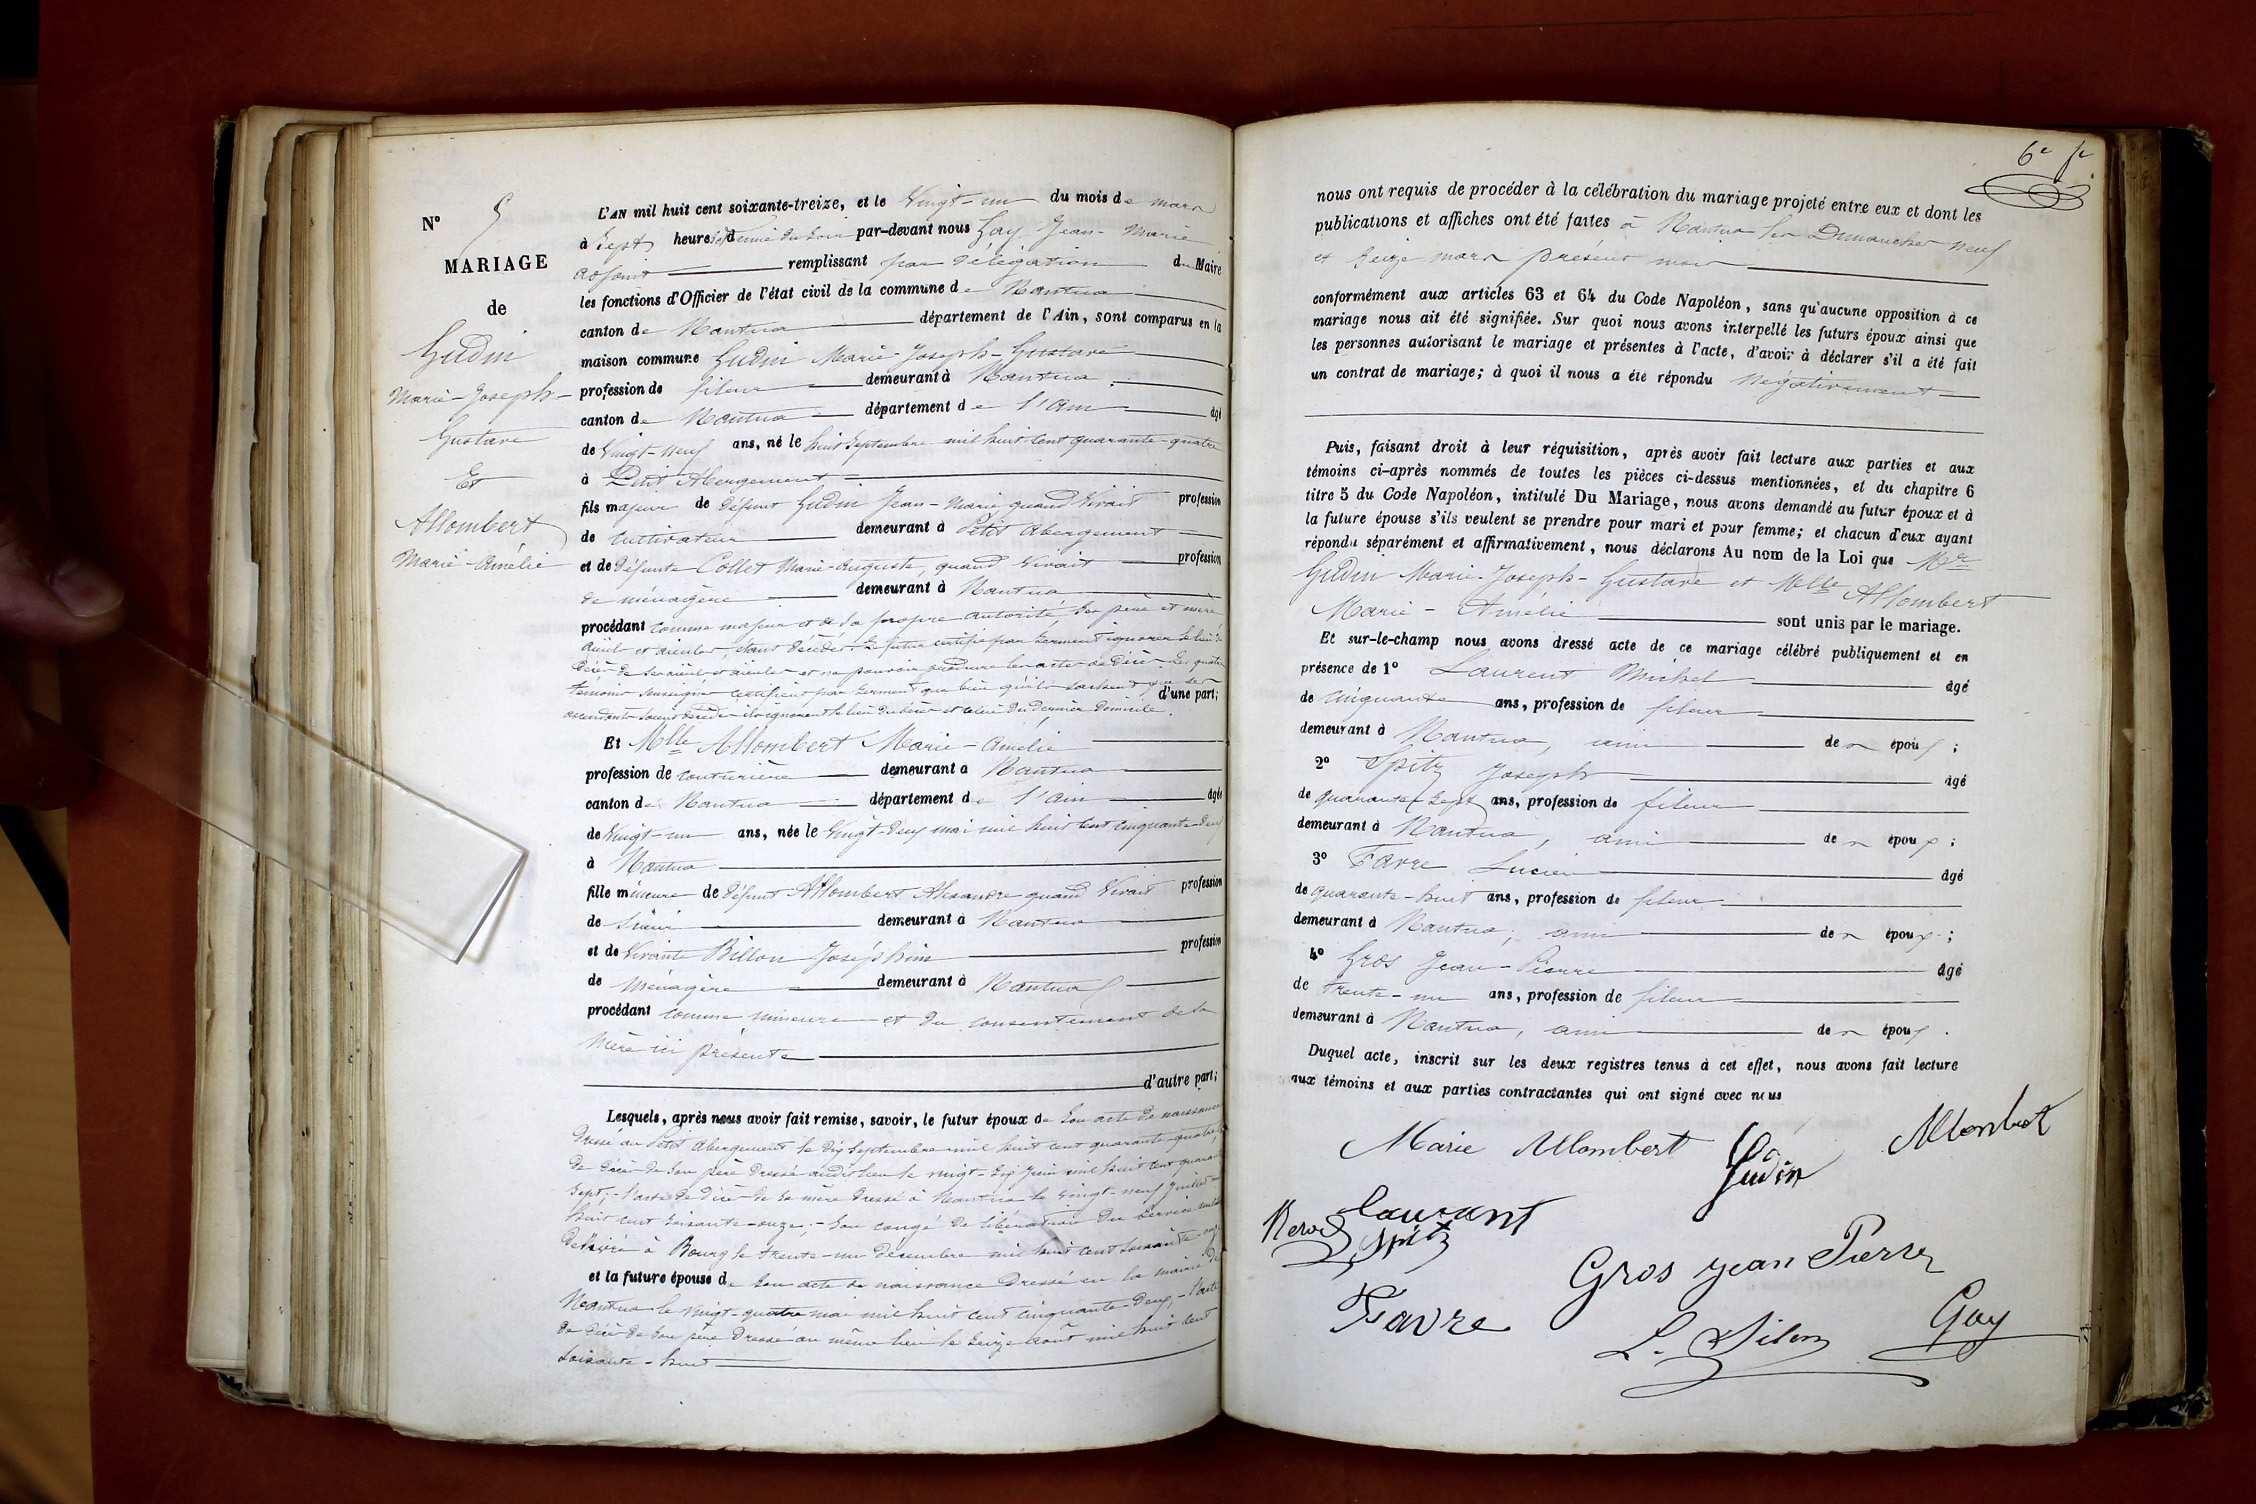 N° 5
MARIAGE
de
Gudin
Marie-Joseph-
Gustave
Et
Allombert
Marie-Amélie
L'AN mil huit cent soixante-treize, et le Vingt-un du mois de mars
à Sept heures et demie du soir par-devant nous Gay Jean-Marie
adjoint remplissant par délégation du Maire
les fonctions d'Officier de l'état civil de la commune de Nantua
canton de Nantua département de l'Ain, sont comparus en la
maison commune Gudin Marie-Joseph-Gustave
profession de fileur demeurant à Nantua
canton de Nantua département de l'Ain âgé
de Vingt-neuf ans, né le huit Septembre mil huit cent quarante-quatre
à Petit Abergement
fils majeur de défunt Gudin Jean-Marie quand Vivait profession
de cultivateur demeurant à Petit Abergement
et de défunte Collet Marie-Auguste, quand Vivait profession
de ménagère demeurant à Nantua
procédant comme majeur et de sa propre autorité, Ses père et mère
aïeuls et aïeules, étant décédés. Le futur certifie par serment ignorer le lieu de
décès de ses aïeuls et aïeules et ne pouvoir produire les actes de décès. Les quatre
témoins soussignés certifient par serment que bien qu'ils sachent que ses d'une part;
ascendants soient décédés ils ignorent le lieu du décès et celui du dernier domicile.
Et Mlle Allombert Marie-Amélie
profession de couturière demeurant à Nantua
canton de Nantua département de l'Ain âgée
de Vingt-un ans, née le Vingt-deux mai mil huit cent cinquante-deux
à Nantua
fille mineure de défunt Allombert Alexandre quand Vivait profession
de demeurant à Nantua
et de Vivante Billon Joséphine profession
de Ménagère demeurant à Nantua
procédant comme mineure et du consentement de sa
Mère ici présente
d'autre part;
Lesquels, après nous avoir fait remise, savoir, le futur époux de Son acte de naissance
dressé au Petit Abergement le dix Septembre mil huit cent quarante-quatre,
de décès de son père dressé audit lieu le vingt-six juin mil huit cent quarante
sept; - l'acte de décès de sa mère dressé à Nantua le vingt-neuf juillet
huit cent soixante-onze; - Son congé de libération du Service
délivré à Bourg le trente-un décembre mil huit cent soixante
et la future épouse de Son acte de naissance dressé en la mairie de
Nantua le vingt-quatre mai mil huit cent cinquante deux, - l'acte
de décès de son père dressé au même lieu le Seize Août mil huit cent
soixante-huit
6e
nous ont requis de procéder à la célébration du mariage projeté entre eux et dont les
publications et affiches ont été faites à Nantua les Dimanches neuf
et Seize mars présent mois
conformément aux articles 63 et 64 du Code Napoléon, sans qu'aucune opposition à ce
mariage nous ait été signifiée. Sur quoi nous avons interpellé les futurs époux ainsi que
les personnes autorisant le mariage et présentes à l'acte, d'avoir à déclarer s'il a été fait
un contrat de mariage; à quoi il nous a été répondu négativement
Puis, faisant droit à leur réquisition, après avoir fait lecture aux parties et aux
témoins ci-après nommés de toutes les pièces ci-dessus mentionnées, et du chapitre 6
titre 5 du Code Napoléon, intitulé Du Mariage, nous avons demandé au futur époux et à
la future épouse s'ils veulent se prendre pour mari et pour femme; et chacun d'eux ayant
répondu séparément et affirmativement, nous déclarons Au nom de la Loi que Mr
Gudin Marie-Joseph-Gustave et Mlle Allombert
Marie-Amélie sont unis par le mariage.
Et sur-le-champ nous avons dressé acte de ce mariage célébré publiquement et en
présence de 1° Laurent Michel âgé
de cinquante ans, profession de fileur
demeurant à Nantua, ami des époux;
2° Spitz Joseph âgé
de quarante-Sept ans, profession de fileur
demeurant à Nantua, ami des époux;
3° Favre Lucien âgé
de quarante-huit ans, profession de fileur
demeurant à Nantua, ami des époux;
4° Gros Jean-Pierre âgé
de trente-un ans, profession de fileur
demeurant à Nantua, ami des époux.
Duquel acte, inscrit sur les deux registres tenus à cet effet, nous avons fait lecture
aux témoins et aux parties contractantes qui ont signé avec nous
Marie Allombert Gudin Allombert
Laurant
Spitz
Gros jean Pierre
Favre
Gay